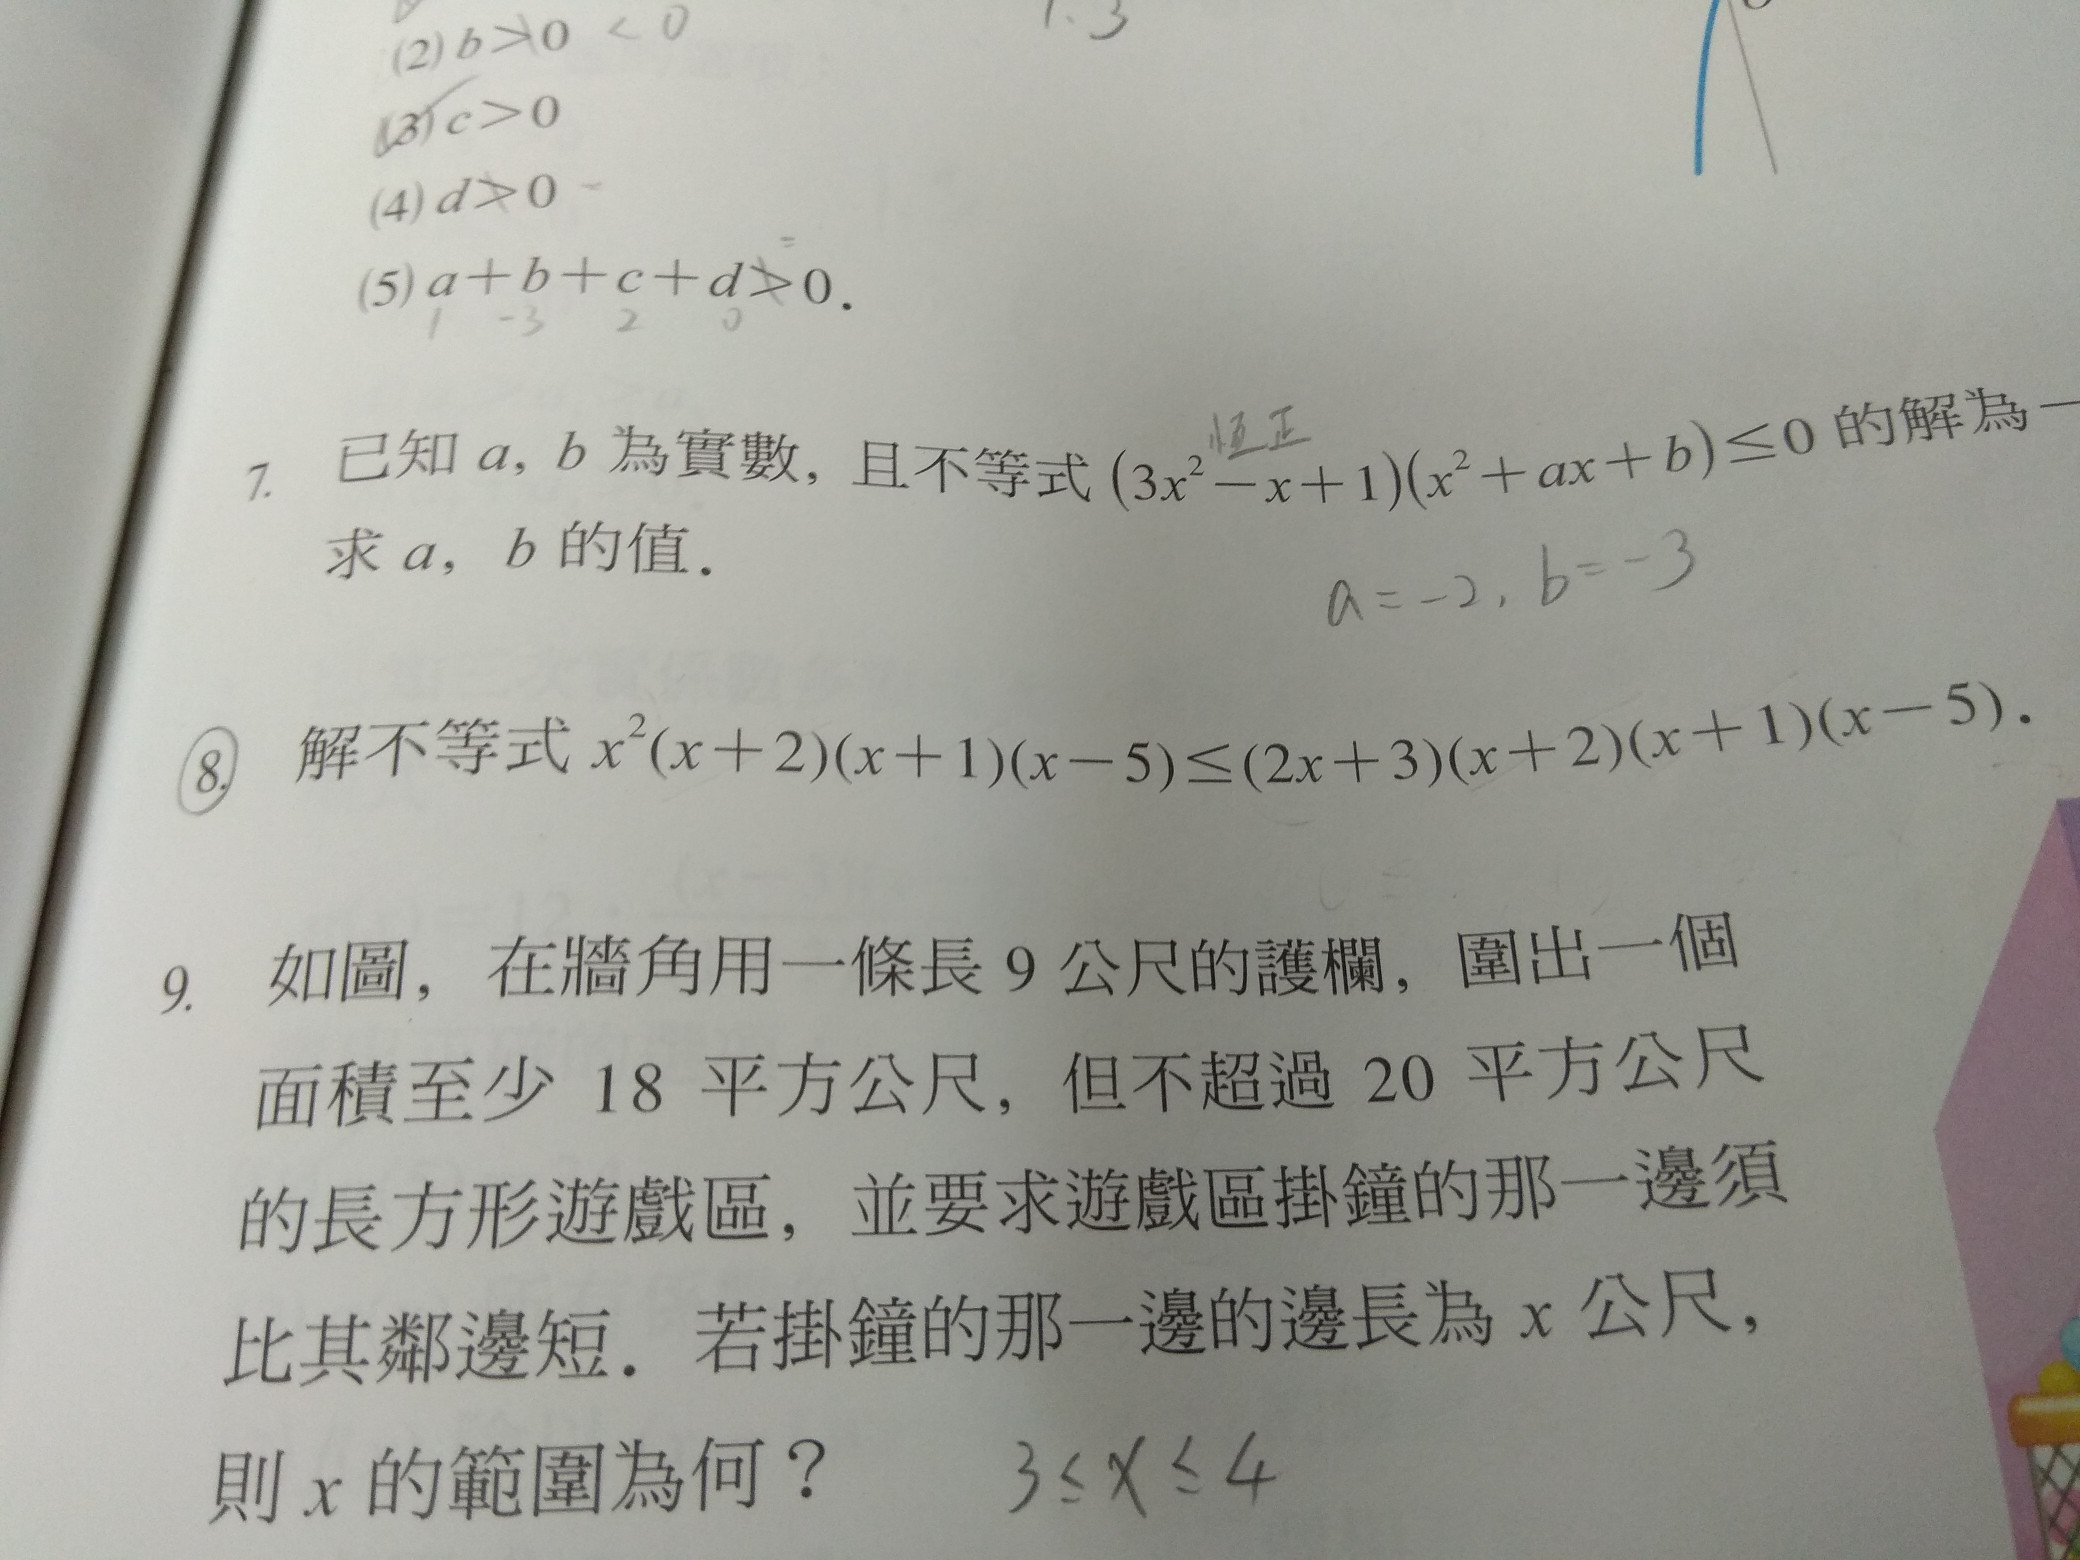 (2) b>0 <0
1.3
(3) c>0
(4) d>0 -
(5) a+b+c+d>0. =
1 -3 2 0
恆正
7. 已知 a, b 為實數, 且不等式 (3x²-x+1)(x²+ax+b)≤0 的解為-
求 a, b 的值.
a=-2, b=-3
8. 解不等式 x²(x+2)(x+1)(x-5)≤(2x+3)(x+2)(x+1)(x-5).
9. 如圖, 在牆角用一條長 9 公尺的護欄, 圍出一個
面積至少 18 平方公尺, 但不超過 20 平方公尺
的長方形遊戲區, 並要求遊戲區掛鐘的那一邊須
比其鄰邊短. 若掛鐘的那一邊的邊長為 x 公尺,
則 x 的範圍為何? 3≤x≤4